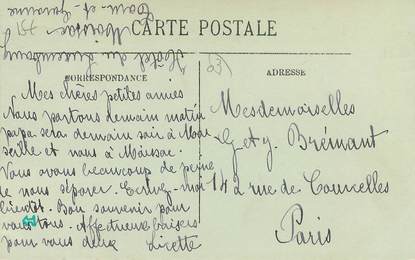 Hôtel du Luxembourg
Moissac
Tarn-et-Garonne
CARTE POSTALE
CORRESPONDANCE
ADRESSE
Mes chères petites amies
Nous partons demain matin
papa sera demain soir à Mar
seille et nous à Moissac.
Nous avons beaucoup de peine
de nous séparer. Ecrivez-moi
bientôt. Bon souvenir pour
vous tous. Affectueux baisers
pour vous deux Lisette
Mesdemoiselles
G et y. Brémant
142 rue de Courcelles
Paris